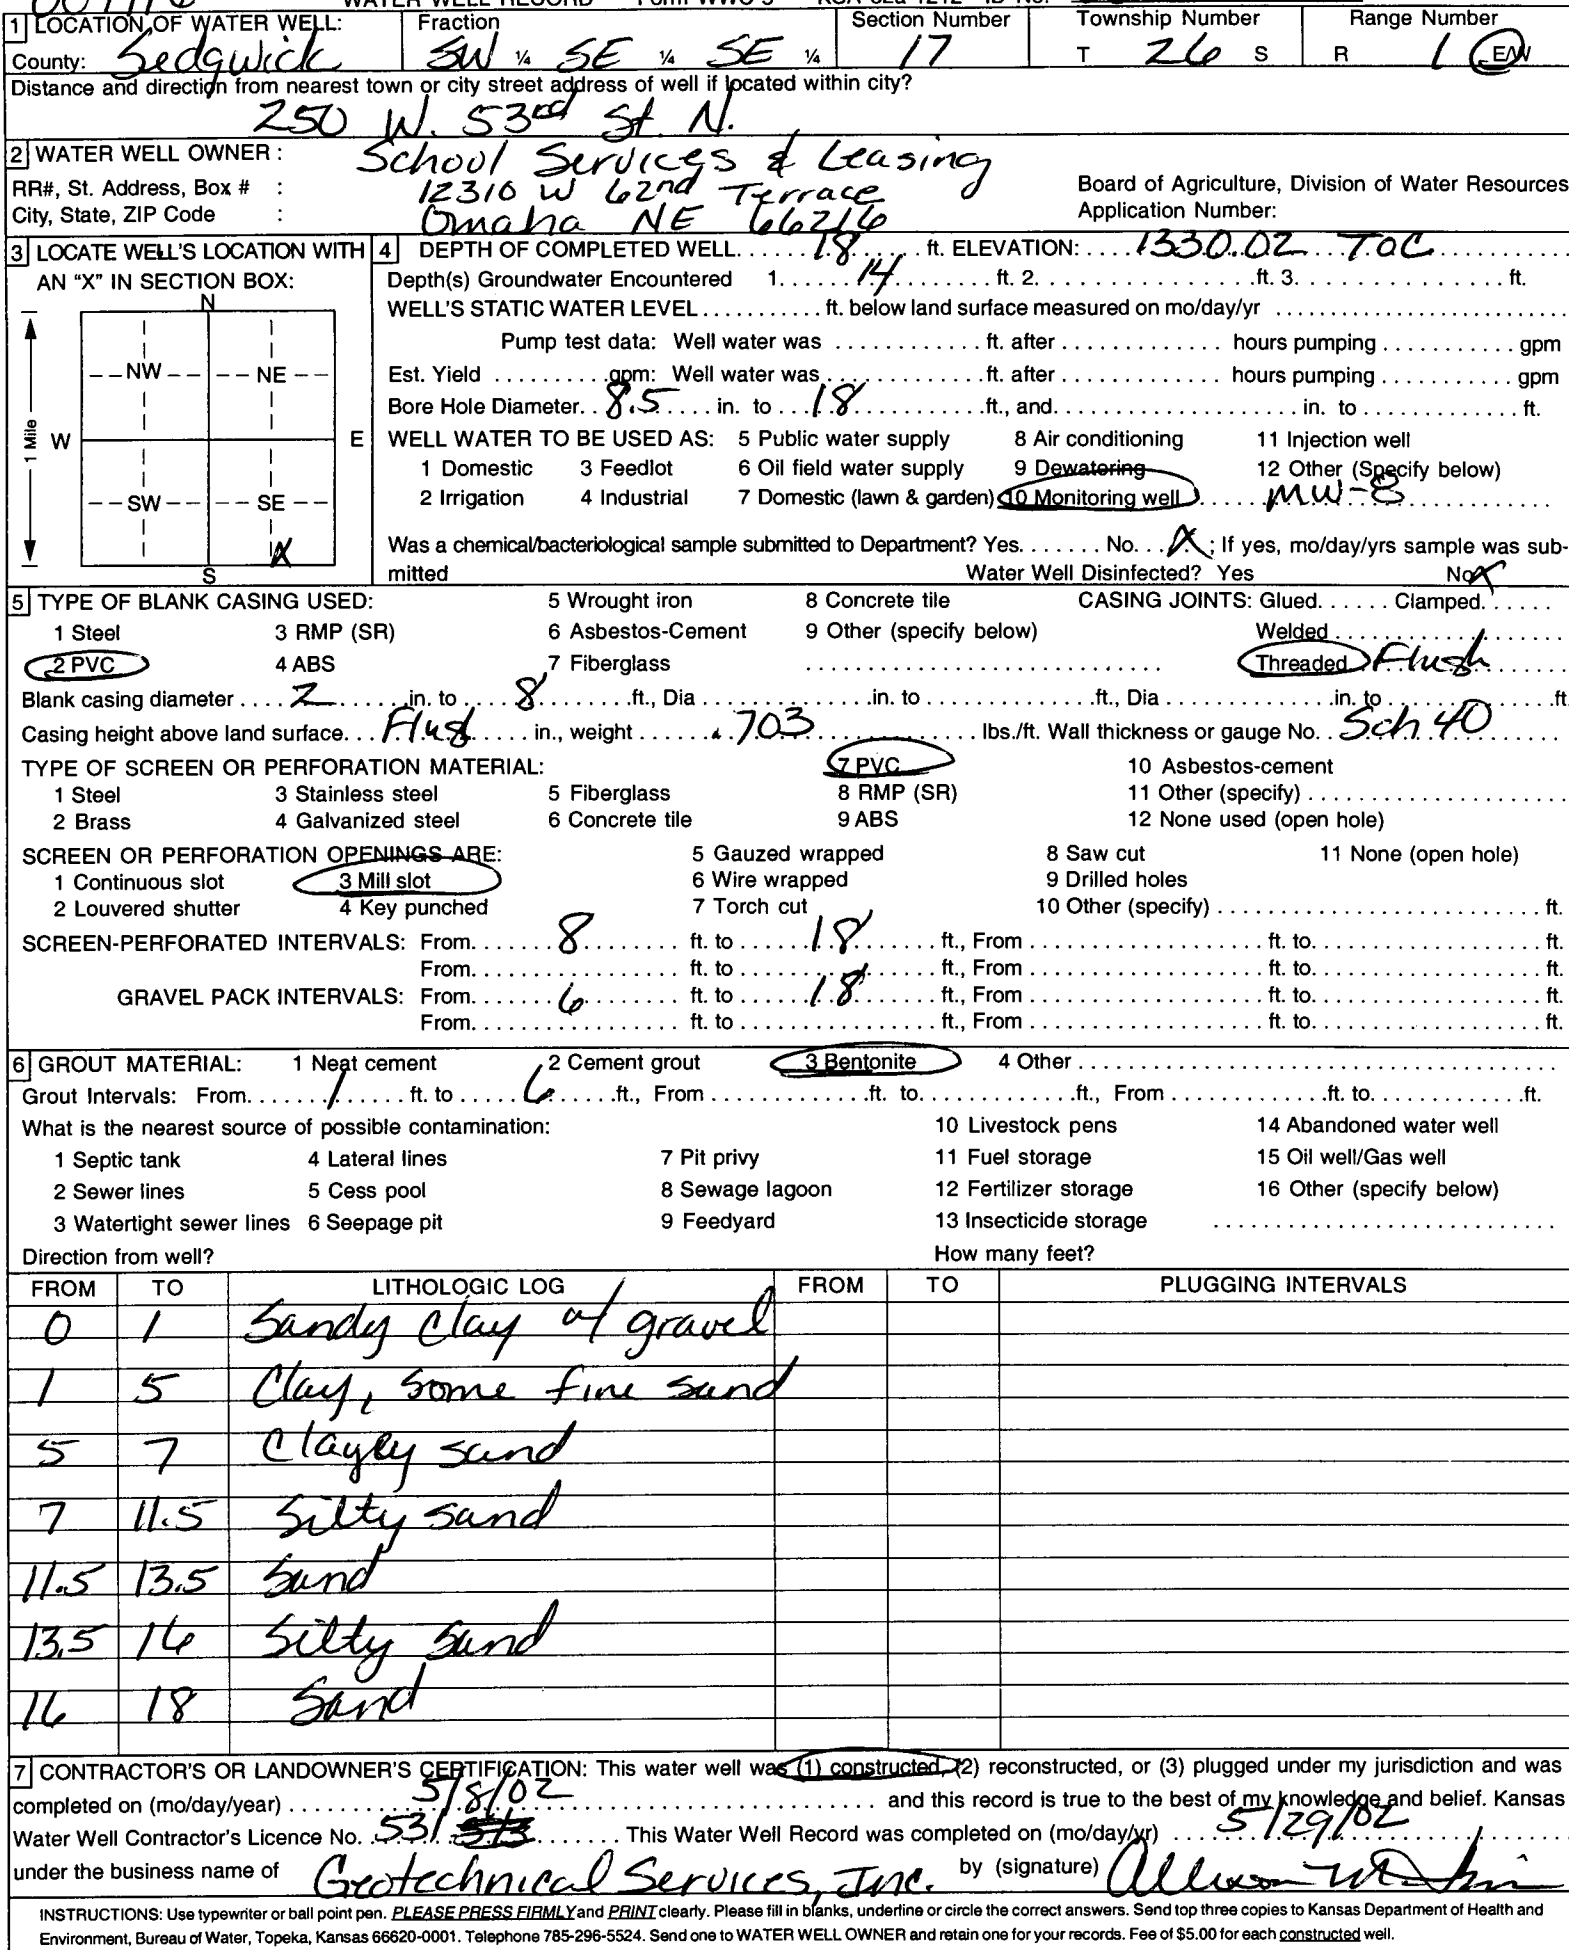 WATER WELL RECORD Form WWC-5 KSA 82a-1212 ID No.
1 LOCATION OF WATER WELL: Fraction Section Number Township Number Range Number
County: Sedgwick SW ¼ SE ¼ SE ¼ 17 T 26 S R 1 E/W
Distance and direction from nearest town or city street address of well if located within city?
250 W. 53rd St. N.
2 WATER WELL OWNER : School Services & Leasing
RR#, St. Address, Box # : 12310 W 62nd Terrace Board of Agriculture, Division of Water Resources
City, State, ZIP Code : Omaha NE 66216 Application Number:
3 LOCATE WELL'S LOCATION WITH AN "X" IN SECTION BOX:
N
NW NE
1 Mile W E
SW SE
X
S
4 DEPTH OF COMPLETED WELL. 18 ft. ELEVATION: 1330.02 TOC
Depth(s) Groundwater Encountered 1. 14 ft. 2. ft. 3. ft.
WELL'S STATIC WATER LEVEL ft. below land surface measured on mo/day/yr
Pump test data: Well water was ft. after hours pumping gpm
Est. Yield gpm: Well water was ft. after hours pumping gpm
Bore Hole Diameter. 8.5 in. to 18 ft., and in. to ft.
WELL WATER TO BE USED AS: 5 Public water supply 8 Air conditioning 11 Injection well
1 Domestic 3 Feedlot 6 Oil field water supply 9 Dewatering 12 Other (Specify below)
2 Irrigation 4 Industrial 7 Domestic (lawn & garden) 10 Monitoring well MW-8
Was a chemical/bacteriological sample submitted to Department? Yes. No. X ; If yes, mo/day/yrs sample was sub-
mitted Water Well Disinfected? Yes No X
5 TYPE OF BLANK CASING USED: 5 Wrought iron 8 Concrete tile CASING JOINTS: Glued. Clamped.
1 Steel 3 RMP (SR) 6 Asbestos-Cement 9 Other (specify below) Welded
2 PVC 4 ABS 7 Fiberglass Threaded Flush
Blank casing diameter 2 in. to 8 ft., Dia in. to ft., Dia in. to ft.
Casing height above land surface. Flush in., weight .703 lbs./ft. Wall thickness or gauge No. Sch 40
TYPE OF SCREEN OR PERFORATION MATERIAL: 7 PVC 10 Asbestos-cement
1 Steel 3 Stainless steel 5 Fiberglass 8 RMP (SR) 11 Other (specify)
2 Brass 4 Galvanized steel 6 Concrete tile 9 ABS 12 None used (open hole)
SCREEN OR PERFORATION OPENINGS ARE: 5 Gauzed wrapped 8 Saw cut 11 None (open hole)
1 Continuous slot 3 Mill slot 6 Wire wrapped 9 Drilled holes
2 Louvered shutter 4 Key punched 7 Torch cut 10 Other (specify) ft.
SCREEN-PERFORATED INTERVALS: From. 8 ft. to 18 ft., From ft. to. ft.
From. ft. to ft., From ft. to. ft.
GRAVEL PACK INTERVALS: From. 6 ft. to 18 ft., From ft. to. ft.
From. ft. to ft., From ft. to. ft.
6 GROUT MATERIAL: 1 Neat cement 2 Cement grout 3 Bentonite 4 Other
Grout Intervals: From. 1 ft. to 6 ft., From ft. to. ft., From ft. to. ft.
What is the nearest source of possible contamination: 10 Livestock pens 14 Abandoned water well
1 Septic tank 4 Lateral lines 7 Pit privy 11 Fuel storage 15 Oil well/Gas well
2 Sewer lines 5 Cess pool 8 Sewage lagoon 12 Fertilizer storage 16 Other (specify below)
3 Watertight sewer lines 6 Seepage pit 9 Feedyard 13 Insecticide storage
Direction from well? How many feet?
FROM TO LITHOLOGIC LOG FROM TO PLUGGING INTERVALS
0 1 Sandy Clay w/ gravel
1 5 Clay, some fine sand
5 7 Clayey sand
7 11.5 Silty sand
11.5 13.5 Sand
13.5 16 Silty Sand
16 18 Sand
7 CONTRACTOR'S OR LANDOWNER'S CERTIFICATION: This water well was (1) constructed, (2) reconstructed, or (3) plugged under my jurisdiction and was
completed on (mo/day/year) 5/8/02 and this record is true to the best of my knowledge and belief. Kansas
Water Well Contractor's Licence No. 531 This Water Well Record was completed on (mo/day/yr) 5/29/02
under the business name of Geotechnical Services, Inc. by (signature)
INSTRUCTIONS: Use typewriter or ball point pen. PLEASE PRESS FIRMLY and PRINT clearly. Please fill in blanks, underline or circle the correct answers. Send top three copies to Kansas Department of Health and
Environment, Bureau of Water, Topeka, Kansas 66620-0001. Telephone 785-296-5524. Send one to WATER WELL OWNER and retain one for your records. Fee of $5.00 for each constructed well.